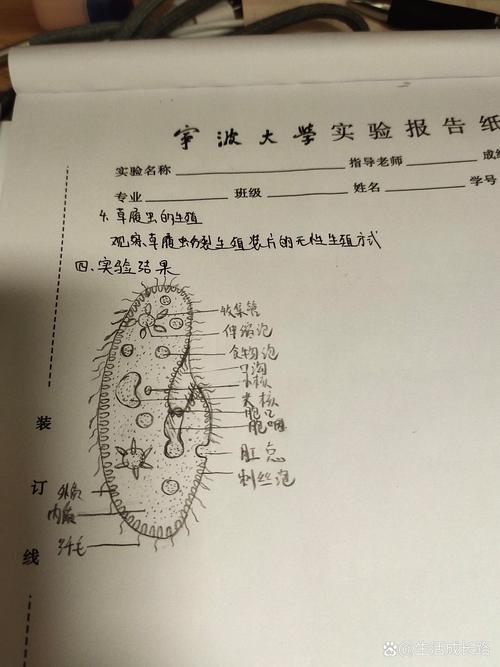 宁波大学实验报告纸
实验名称 指导老师 成绩
专业 班级 姓名 学号
4. 草履虫的生殖
观察草履虫分裂生殖装片的无性生殖方式
四、实验结果
收集管
伸缩泡
食物泡
口沟
小核
大核
胞口
胞咽
肛点
刺丝泡
外质
内质
纤毛
装
订
线
@生活成长路